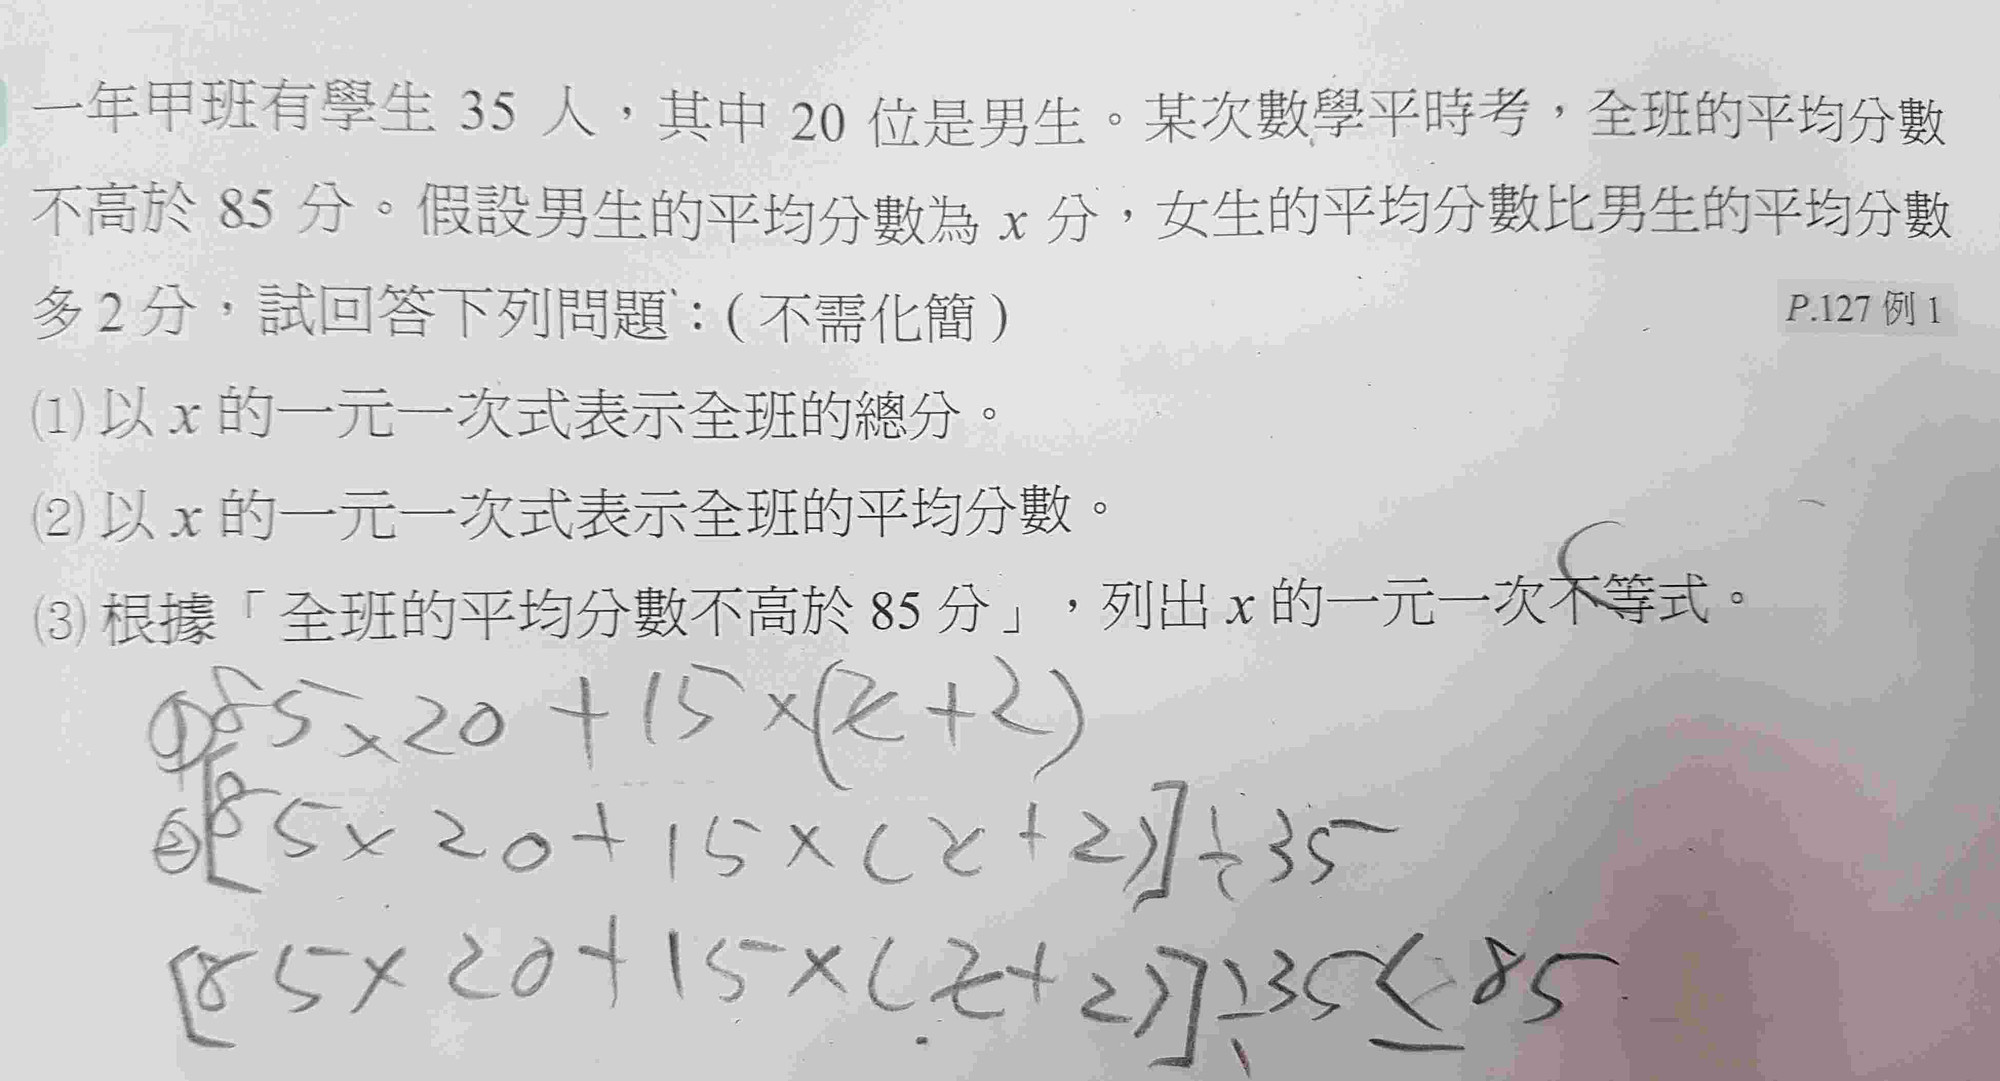 一年甲班有學生 35 人，其中 20 位是男生。某次數學平時考，全班的平均分數
不高於 85 分。假設男生的平均分數為 x 分，女生的平均分數比男生的平均分數
多 2 分，試回答下列問題：( 不需化簡 )
P.127 例 1
(1) 以 x 的一元一次式表示全班的總分。
(2) 以 x 的一元一次式表示全班的平均分數。
(3) 根據「全班的平均分數不高於 85 分」，列出 x 的一元一次不等式。
① 85×20+15×(x+2)
② [85×20+15×(x+2)]÷35
[85×20+15×(x+2)]÷35≤85